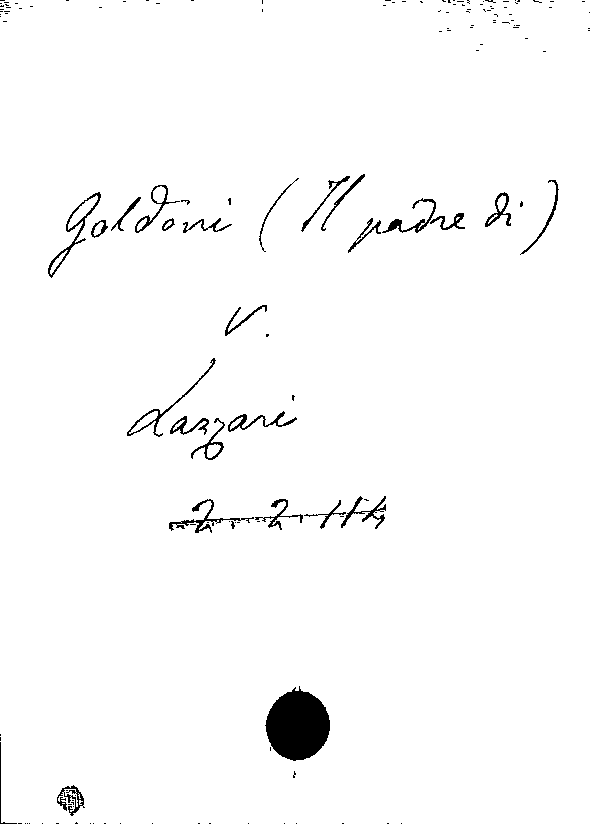 Goldoni (Il padre di)
V.
Lazzari